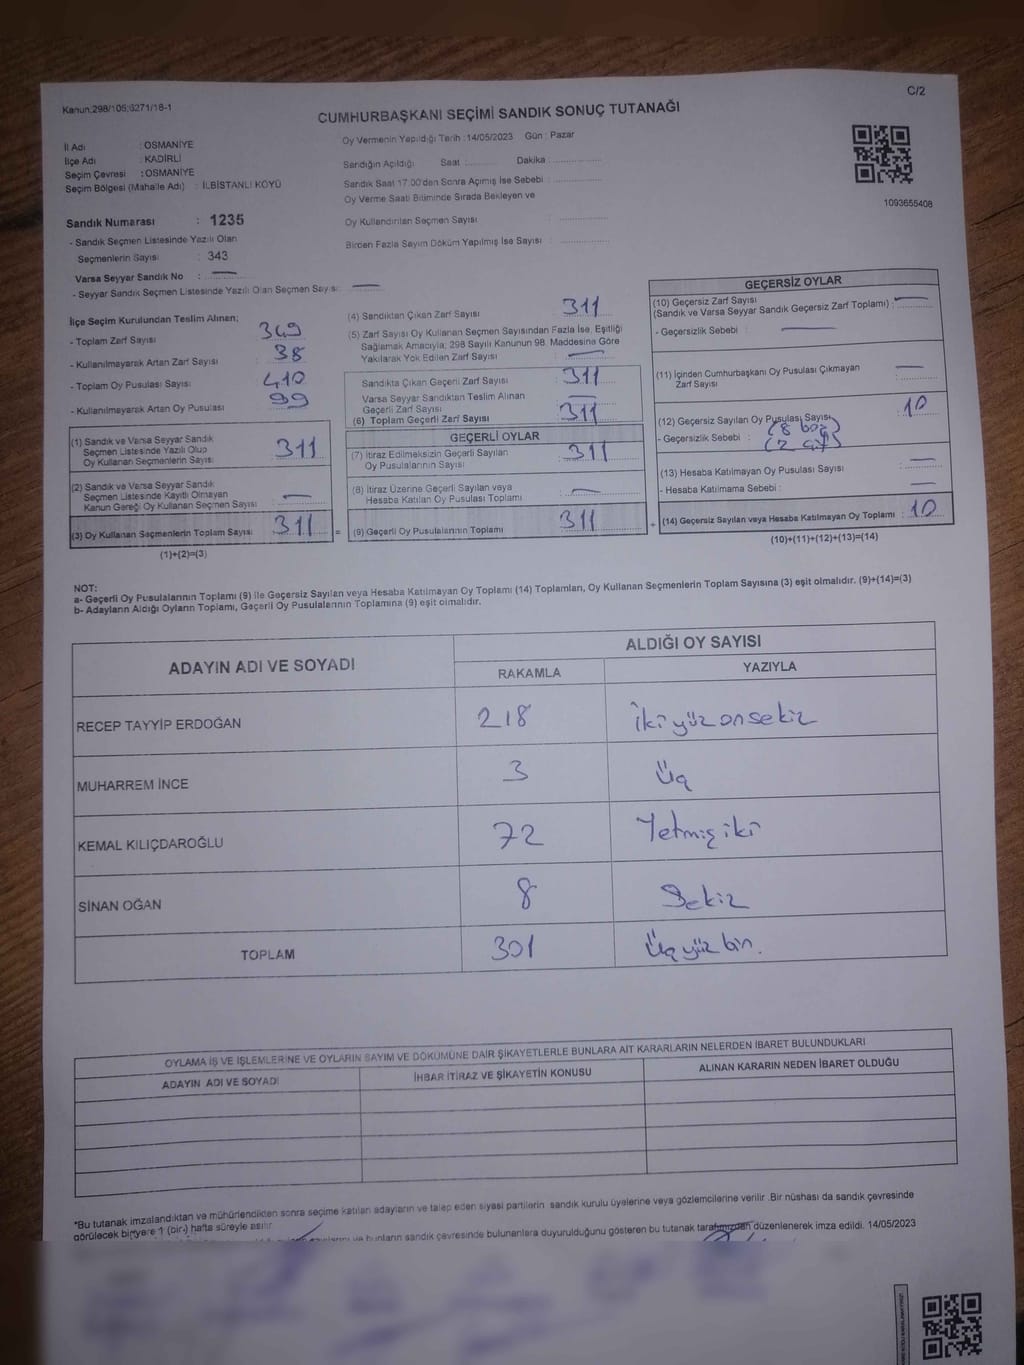 C/2
Kanun:298/105;6271/18-1
CUMHURBAŞKANI SEÇİMİ SANDIK SONUÇ TUTANAĞI
İl Adı : OSMANİYE
İlçe Adı : KADİRLİ
Seçim Çevresi : OSMANİYE
Seçim Bölgesi (Mahalle Adı) : İLBİSTANLI KÖYÜ
Oy Vermenin Yapıldığı Tarih :14/05/2023 Gün : Pazar
Sandığın Açıldığı Saat : Dakika :
Sandık Saat 17.00'den Sonra Açımış İse Sebebi :
Oy Verme Saati Bitiminde Sırada Bekleyen ve
Oy Kullandırılan Seçmen Sayısı :
Birden Fazla Sayım Döküm Yapılmış İse Sayısı :
1093655408
Sandık Numarası : 1235
- Sandık Seçmen Listesinde Yazılı Olan
Seçmenlerin Sayısı : 343
Varsa Seyyar Sandık No : —
- Seyyar Sandık Seçmen Listesinde Yazılı Olan Seçmen Sayısı: —
İlçe Seçim Kurulundan Teslim Alınan;
- Toplam Zarf Sayısı : 349
- Kullanılmayarak Artan Zarf Sayısı : 38
- Toplam Oy Pusulası Sayısı : 410
- Kullanılmayarak Artan Oy Pusulası : 99
(1) Sandık ve Varsa Seyyar Sandık
Seçmen Listesinde Yazılı Olup
Oy Kullanan Seçmenlerin Sayısı : 311
(2) Sandık ve Varsa Seyyar Sandık
Seçmen Listesinde Kayıtlı Olmayan
Kanun Gereği Oy Kullanan Seçmen Sayısı : —
(3) Oy Kullanan Seçmenlerin Toplam Sayısı : 311 =
(1)+(2)=(3)
(4) Sandıktan Çıkan Zarf Sayısı : 311
(5) Zarf Sayısı Oy Kullanan Seçmen Sayısından Fazla İse, Eşitliği
Sağlamak Amacıyla; 298 Sayılı Kanunun 98. Maddesine Göre
Yakılarak Yok Edilen Zarf Sayısı : —
Sandıkta Çıkan Geçerli Zarf Sayısı : 311
Varsa Seyyar Sandıktan Teslim Alınan
Geçerli Zarf Sayısı : —
(6) Toplam Geçerli Zarf Sayısı : 311
GEÇERLİ OYLAR
(7) İtiraz Edilmeksizin Geçerli Sayılan
Oy Pusulalarının Sayısı : 311
(8) İtiraz Üzerine Geçerli Sayılan veya
Hesaba Katılan Oy Pusulası Toplamı : —
(9) Geçerli Oy Pusulalarının Toplamı : 311 +
GEÇERSİZ OYLAR
(10) Geçersiz Zarf Sayısı
(Sandık ve Varsa Seyyar Sandık Geçersiz Zarf Toplamı) : —
- Geçersizlik Sebebi : —
(11) İçinden Cumhurbaşkanı Oy Pusulası Çıkmayan
Zarf Sayısı : —
(12) Geçersiz Sayılan Oy Pusulası Sayısı : 10
(8 boş)
- Geçersizlik Sebebi : (2 )
(13) Hesaba Katılmayan Oy Pusulası Sayısı : —
- Hesaba Katılmama Sebebi : —
(14) Geçersiz Sayılan veya Hesaba Katılmayan Oy Toplamı : 10
(10)+(11)+(12)+(13)=(14)
NOT:
a- Geçerli Oy Pusulalarının Toplamı (9) ile Geçersiz Sayılan veya Hesaba Katılmayan Oy Toplamı (14) Toplamları, Oy Kullanan Seçmenlerin Toplam Sayısına (3) eşit olmalıdır. (9)+(14)=(3)
b- Adayların Aldığı Oyların Toplamı, Geçerli Oy Pusulalarının Toplamına (9) eşit olmalıdır.
ADAYIN ADI VE SOYADI
ALDIĞI OY SAYISI
RAKAMLA YAZIYLA
RECEP TAYYİP ERDOĞAN 218 İkiyüzonsekiz
MUHARREM İNCE 3 Üç
KEMAL KILIÇDAROĞLU 72 Yetmişiki
SİNAN OĞAN 8 Sekiz
TOPLAM 301 Üçyüz bir.
OYLAMA İŞ VE İŞLEMLERİNE VE OYLARIN SAYIM VE DÖKÜMÜNE DAİR ŞİKAYETLERLE BUNLARA AİT KARARLARIN NELERDEN İBARET BULUNDUKLARI
ADAYIN ADI VE SOYADI İHBAR İTİRAZ VE ŞİKAYETİN KONUSU ALINAN KARARIN NEDEN İBARET OLDUĞU
*Bu tutanak imzalandıktan ve mühürlendikten sonra seçime katılan adayların ve talep eden siyasi partilerin sandık kurulu üyelerine veya gözlemcilerine verilir .Bir nüshası da sandık çevresinde
görülecek bir yere 1 (bir) hafta süreyle asılır.
ve bunların sandık çevresinde bulunanlara duyurulduğunu gösteren bu tutanak tarafımızdan düzenlenerek imza edildi. 14/05/2023